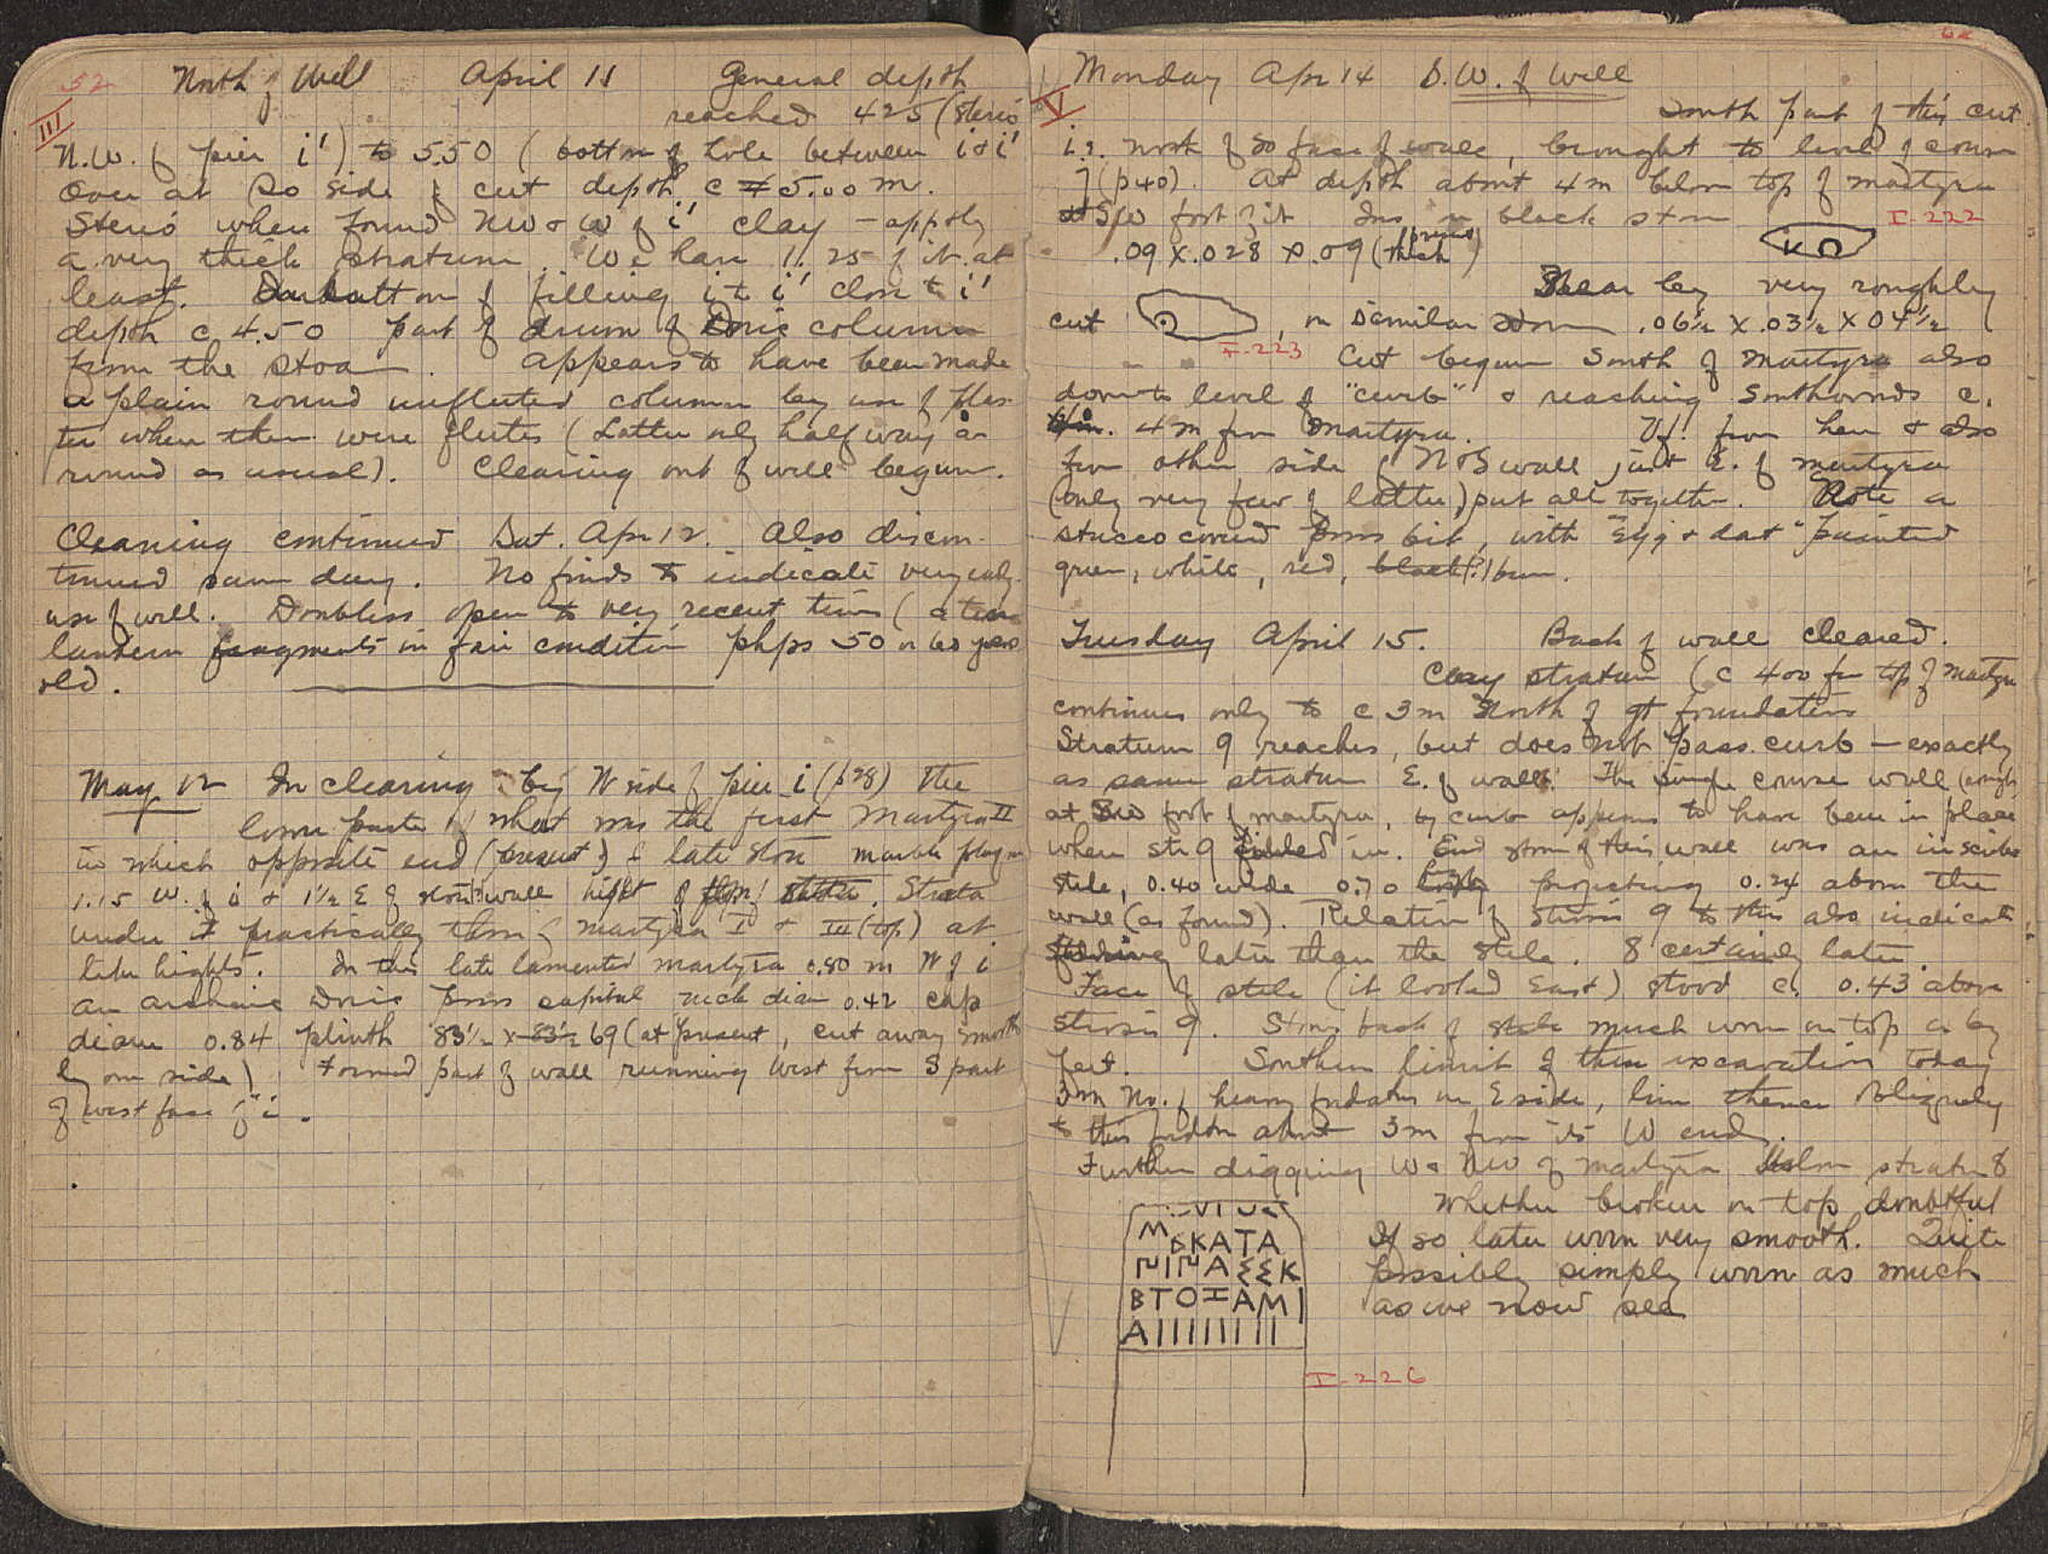 52 North of Well April 11 General depth
III reached 425 (stereo
N.W. of pier i') to 5.50 (bottom of hole between i & i'
Over at So side of cut depth c 5.00 m.
Stereo when found NW & W of i' clay — apptly
a very thick stratum. We have 1.25 of it at
least. bottom of filling i to i' close to i'
depth c 4.50 part of drum of Doric column
from the stoa. Appears to have been made
a plain round unfluted column by use of plas-
ter when there were flutes (Latter only half way a-
round as usual). Clearing out of well begun.
Clearing continued Sat. Apr 12. Also discon-
tinued same day. No finds to indicate very early
use of well. Doubtless open to very recent times (a
lantern fragments in fair condition phps 50 or 60 years
old.
May 12 In clearing by W side of pier i (p28) the
lower parts of what was the first Martyra II
in which opposite end (present) late stoa marble
1.15 W. of i & 1½ E of wall hight of Strata
under it practically those of martyra I & III (top) at
like hights. In this late lamented martyra 0.80 m W of i
an archaic Doric poros capital neck diam 0.42 cap
diam 0.84 plinth 83½ x 83½ 69 (at present, cut away smooth
ly one side) Formed part of wall running West from S part
of west face of i.
Monday Apr 14 S.W. of Well
V South part of this cut
i.e. north of So face of wall, brought to level of course
j (p40). At depth about 4m below top of martyra
at S/W foot of it Ins on black stone I-222
.09 x .028 x .09 (thick)
Near by very roughly
cut , on similar stone .06½ x .03½ x 04½
I-223 Cut begun South of Martyra also
down to level of "curb" & reaching Southwards c.
4m from Martyra. Vf. from here & also
from other side of N&S wall just E. of martyra
(only very few of latter) put all together. Note a
stucco covered poros bit, with "Egg & dart" painted
green, white, red, black(?)
Tuesday April 15. Back of wall cleared.
Clay stratum (c 400 fr top of martyra
continues only to c 3m North of gt foundation
Stratum 9 reaches, but does not pass curb — exactly
as same stratum E. of wall. The single course wall (rough)
at foot of martyra, by curb appears to have been in place
when str 9 filled in. End stone of this wall was an inscribed
stele, 0.40 wide 0.70 projecting 0.24 above the
wall (as found). Relation of Stereo 9 to this also indicates
later than the stele. 8 certainly later.
Face of stele (it looked East) stood c. 0.43 above
Stereo 9. back of stele much worn on top as by
feet. Southern limit of these excavation today
3m No. of heavy fndatns on E side, line thence obliquely
to this fndtn about 3m from its W end.
Further digging W & NW of martyra below stratum 8
Whether broken on top doubtful
If so later worn very smooth. Quite
possibly simply worn as much
as we now see
ΜΕΚΑΤΑ
ΓΙΓΑΣΣΚ
ΒΤΟΙΑΜΙ
ΑΙΙΙΙΙΙΙΙ
I-226